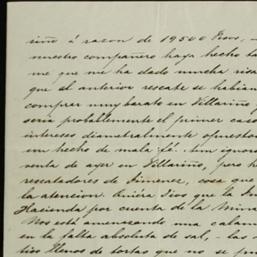 á razon de 19500 Pesos, -
nuestro compañero haya hecho ta
me que me ha dado mucha risa
que el anterior rescate se habian
comprar muy barato en Villariño y
será probablemente el primer caso
intereses diametralmente opuestos
un hecho de mala fé. Un ignora
venta de ayer en Villariño, pero h
rescatadores de Jimenez, cosa que
la atencion. Quiera Dios que la In
Hacienda por cuenta de la Mina
Nos está amenazando una calam
en la falta absoluta de sal, - las
llenos de tortas que no se pu